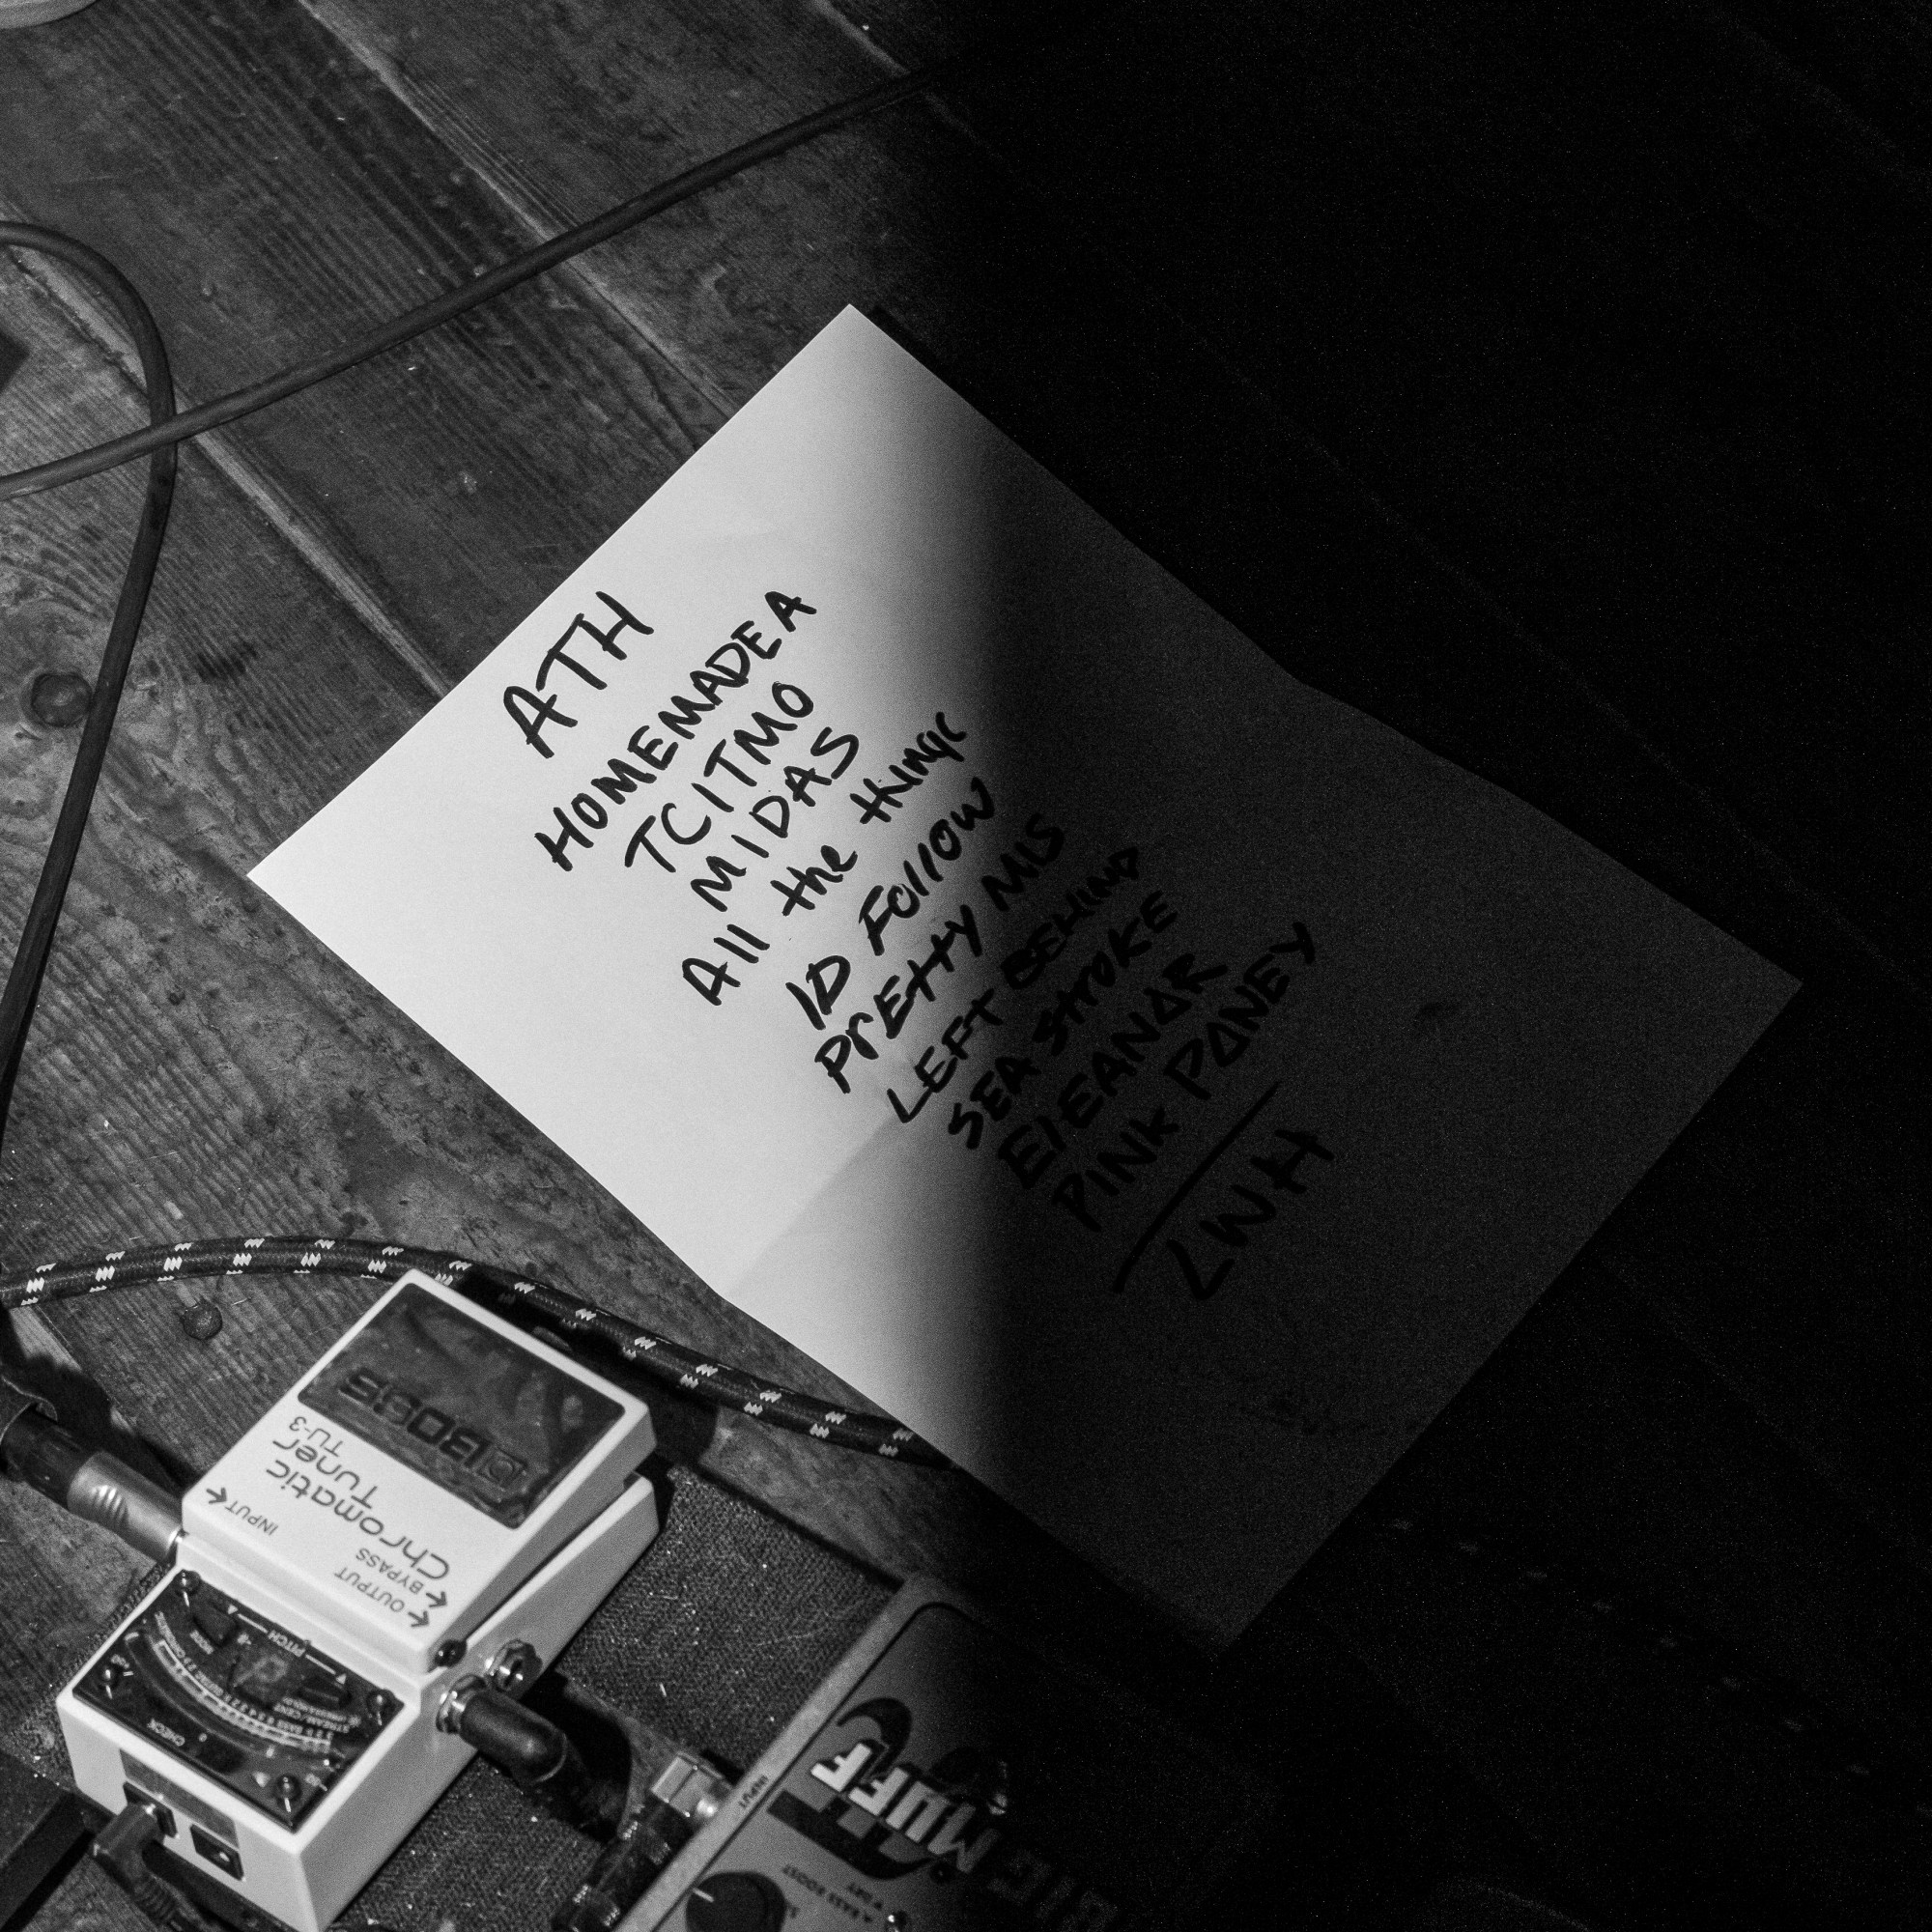 ATH
HOMEMADEA
TCITMO
MIDAS
All the things
ID Follow
PrEttY MIS
LEFT BEHIND
SEA StrOKE
ElEANOR
PINK PONEY
LWH
BOSS
Chromatic
Tuner
TU-3
INPUT
OUTPUT
BYPASS
PITCH
CHECK
INPUT
BASS BOOST
DRY
BIG MUFF